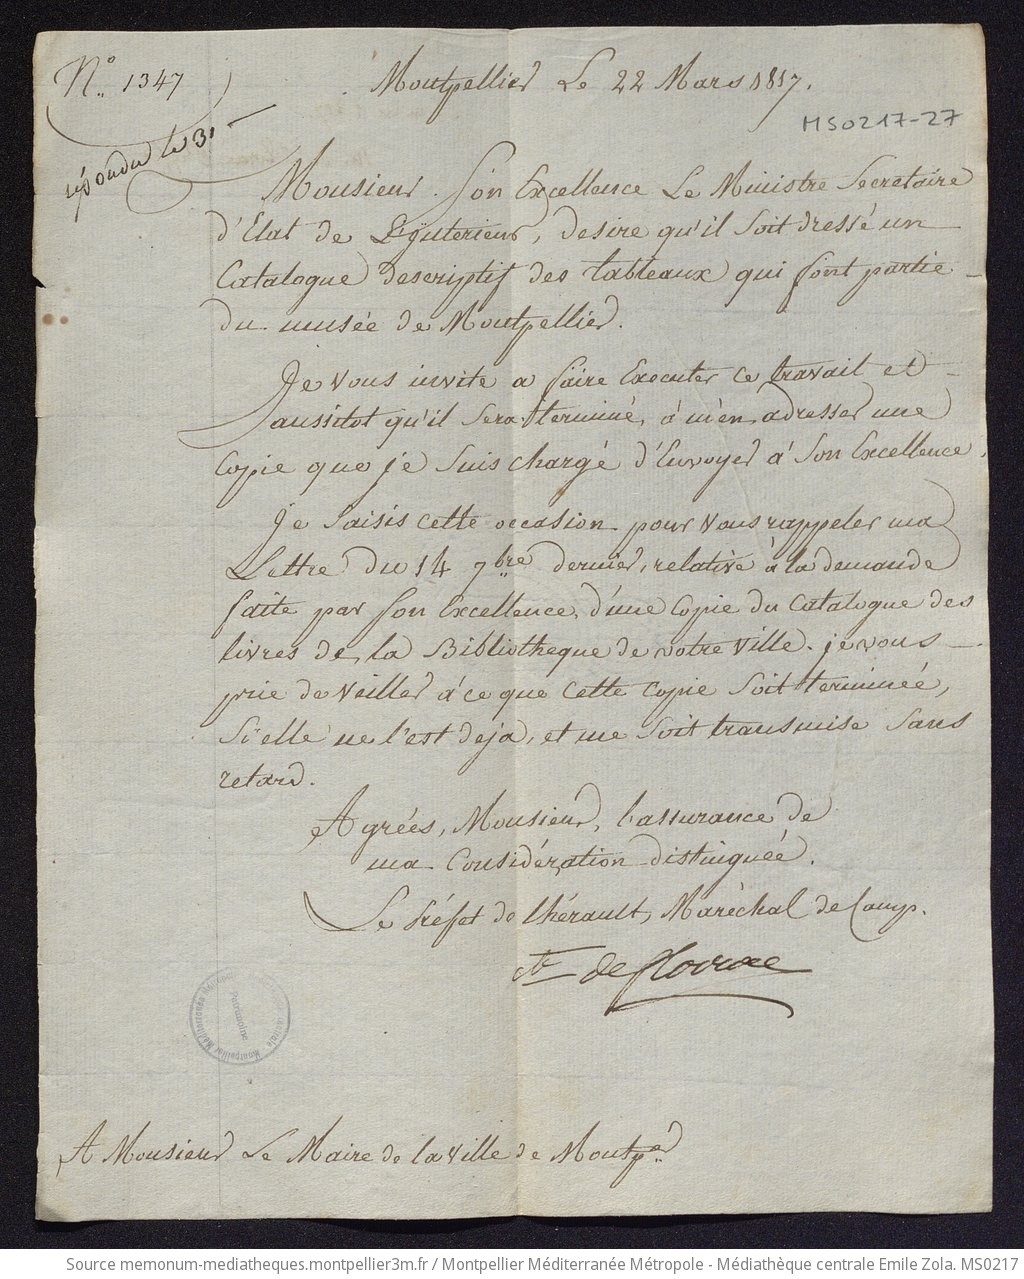 N.° 1347
Montpellier Le 22 Mars 1817.
MS0217-27
répondu le 31
Monsieur. Son Excellence Le Ministre Secretaire
d'Etat de L'Interieur, desire qu'il soit dressé un
Catalogue descriptif des tableaux qui font partie
du musée de Montpellier.
Je vous invite a faire Executer ce travail et
aussitot qu'il sera terminé, à m'en adresser une
Copie que je suis chargé d'Envoyer à Son Excellence.
Je saisis cette occasion pour vous rappeler ma
Lettre du 14 7.bre dernier, relative à la demande
faite par Son Excellence, d'une Copie du Catalogue des
livres de la Bibliotheque de votre Ville. je vous
prie de veiller à ce que cette copie soit terminée,
si elle ne l'est deja, et me soit transmise sans
retard.
Agrées, Monsieur, l'assurance de
ma Considération distinguée.
Le Préfet de l'hérault, Maréchal de Camp.
cte de floirac
Patrimoine
Montpellier Méditerranée
A Monsieur Le Maire de la Ville de Montp.er
Source memonum-mediatheques.montpellier3m.fr / Montpellier Méditerranée Métropole - Médiathèque centrale Emile Zola. MS0217